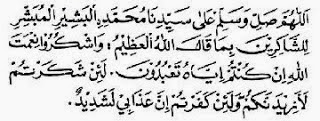 اَللّٰهُمَّ صَلِّ وَسَلِّمْ عَلٰى سَيِّدِنَا مُحَمَّدِ ࣙالْبَشِيْرِ الْمُبَشِّرِ
لِلشَّاكِرِيْنَ بِمَا قَالَ اللهُ الْعَظِيْمُ: وَاشْكُرُوْا نِعْمَتَ
اللهِ اِنْ كُنْتُمْ اِيَّاهُ تَعْبُدُوْنَ. لَئِنْ شَكَرْتُمْ
لَاَزِيْدَنَّكُمْ وَلَئِنْ كَفَرْتُمْ اِنَّ عَذَابِيْ لَشَدِيْدٌ.